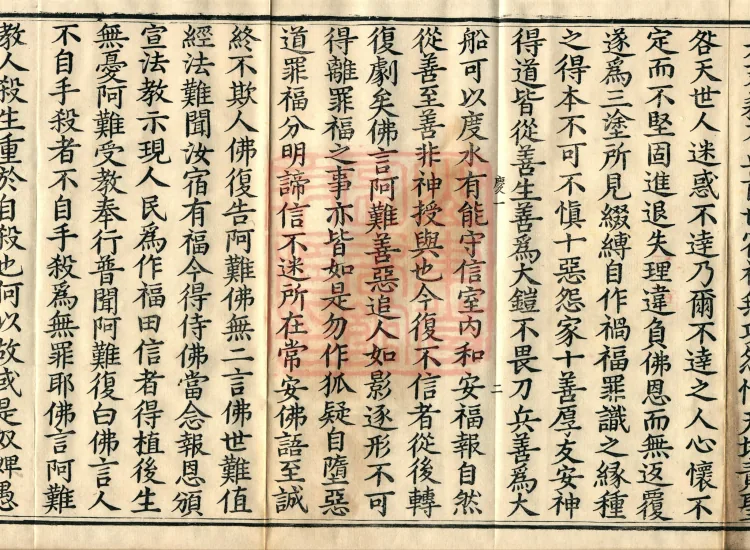 咎天世人迷惑不達乃爾不達之人心懷不
定而不堅固進退失理違負佛恩而無返覆
遂爲三塗所見綴縛自作禍福罪識之緣種
之得本不可不慎十惡怨家十善厚友安神
得道皆從善生善爲大鎧不畏刀兵善爲大
慶一 二
船可以度水有能守信室内和安福報自然
從善至善非神授與也今復不信者從後轉
復劇矣佛言阿難善惡追人如影逐形不可
得離罪福之事亦皆如是勿作狐疑自墮惡
道罪福分明諦信不迷所在常安佛語至誠
終不欺人佛復告阿難佛無二言佛世難值
經法難聞汝宿有福今得侍佛當念報恩頒
宣法教示現人民爲作福田信者得植後生
無憂阿難受教奉行普聞阿難復白佛言人
不自手殺者不自手殺爲無罪耶佛言阿難
教人殺生重於自殺也何以故或是奴婢愚